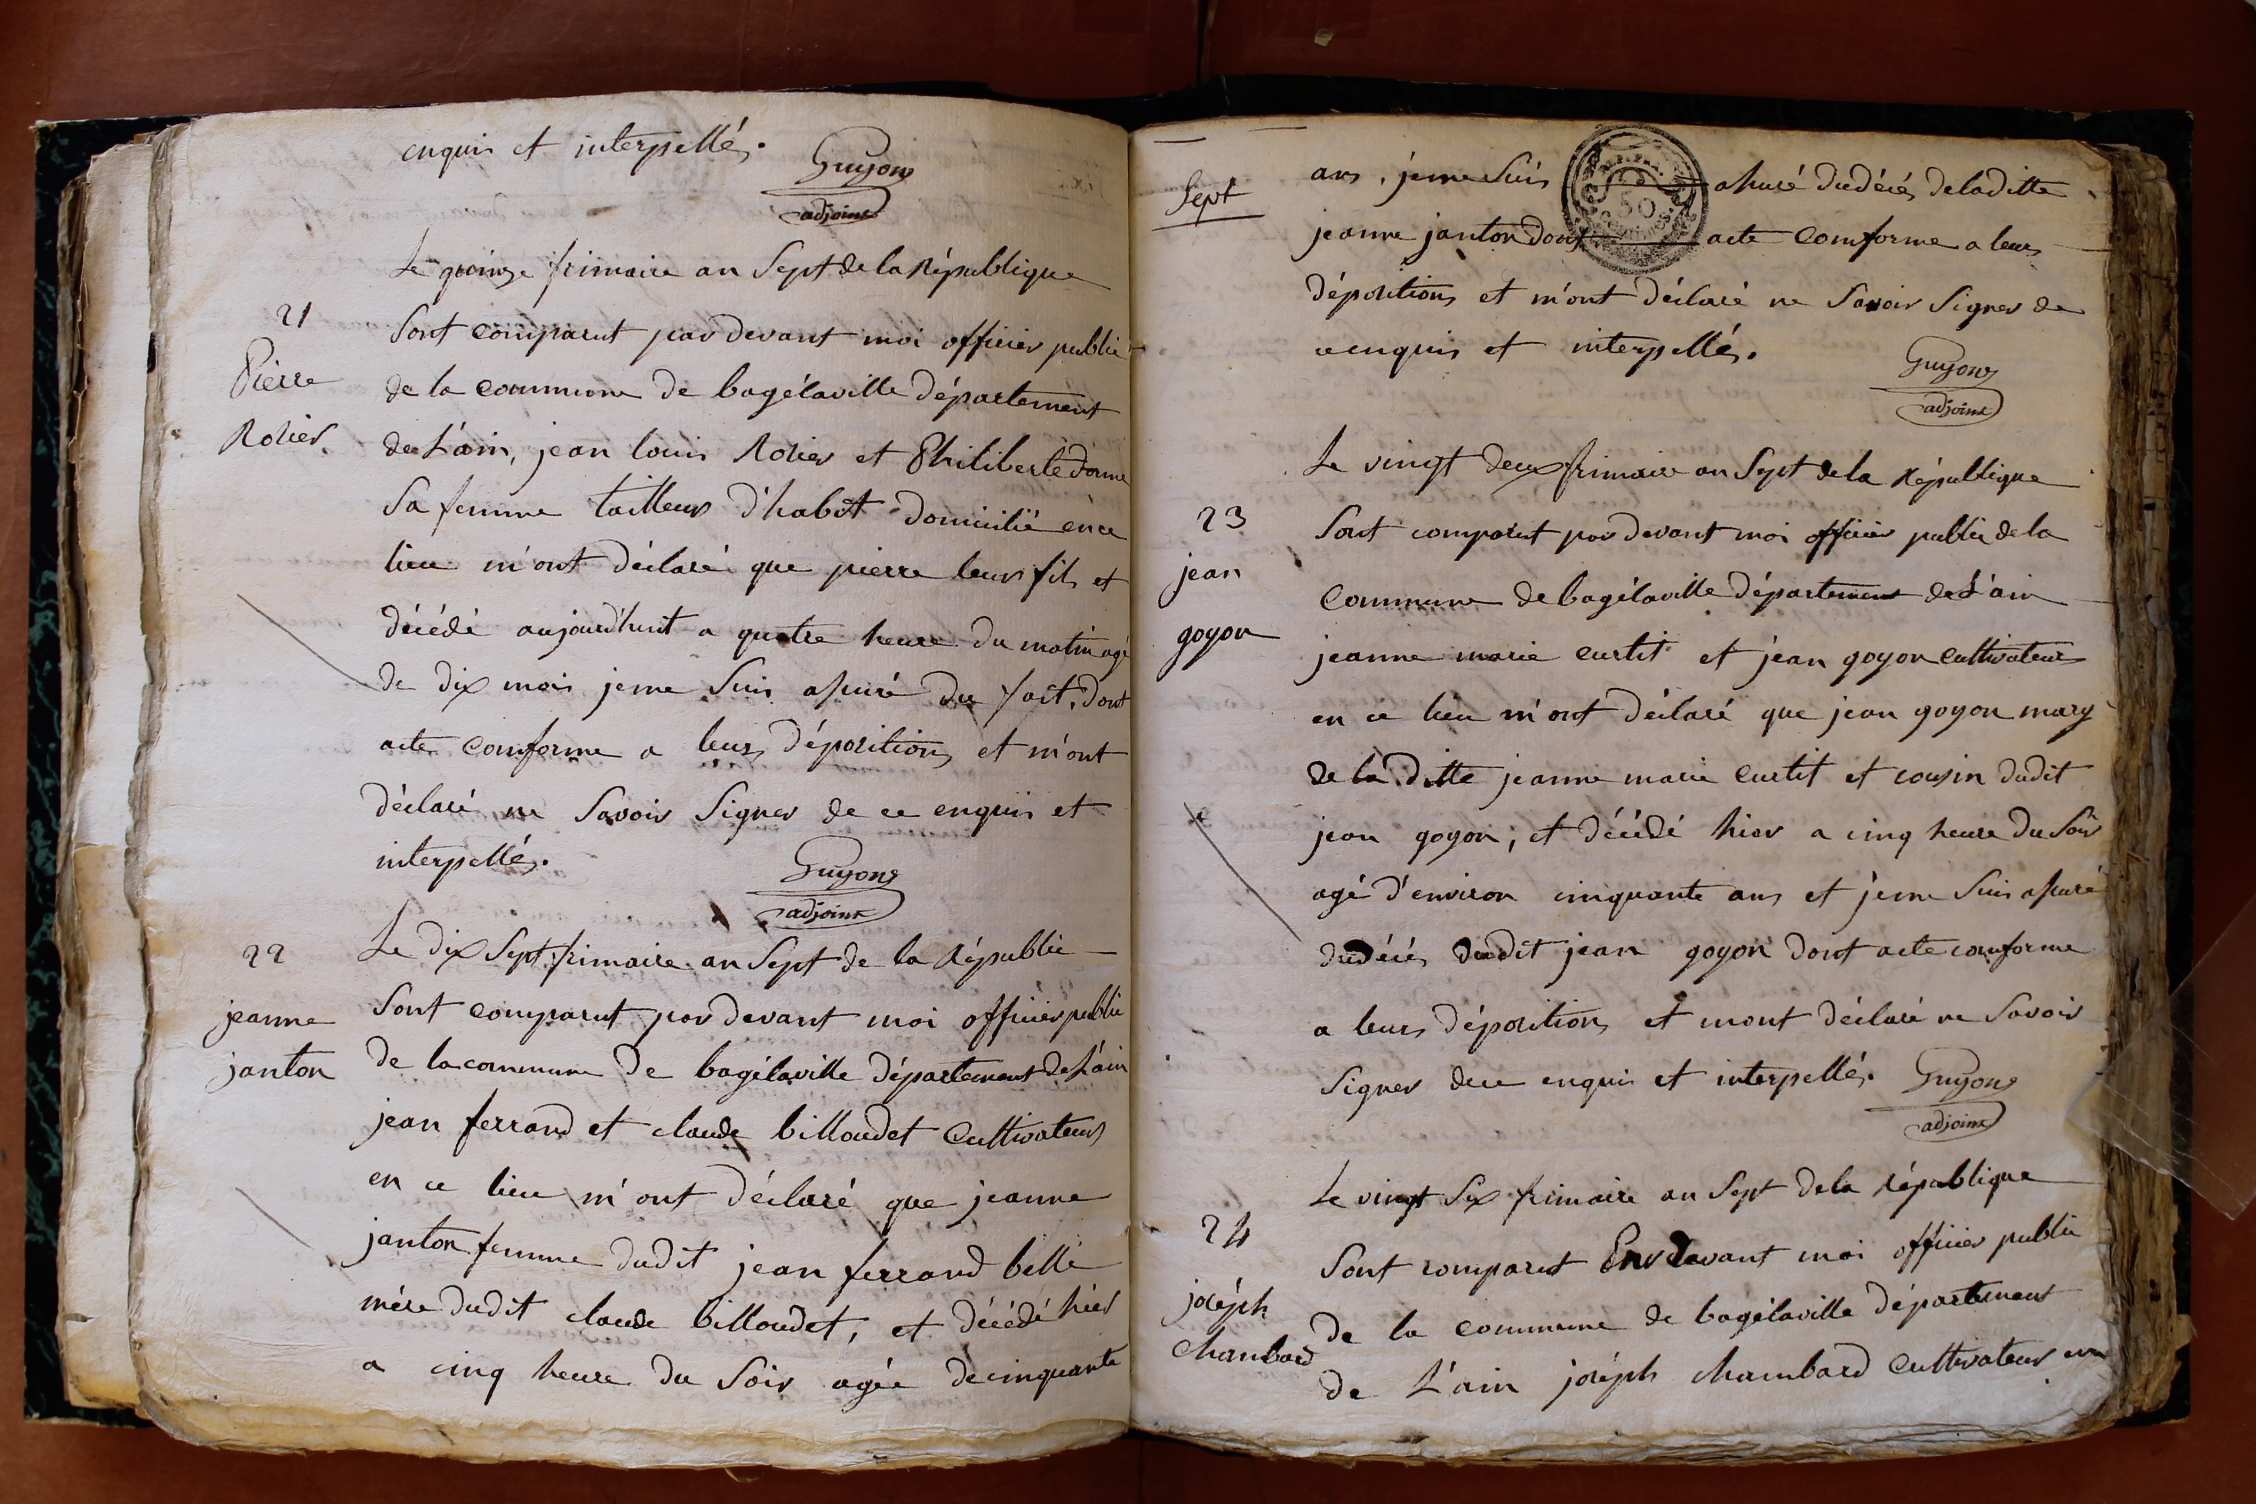 enquis et interpellés.
Guyon
adjoint
Le quinze frimaire an Sept de la République
21
Pierre
Rolier
Sont comparut par devant moi officier public
de la commune de bagélaville département
de L'ain, jean louis Rolier et Philiberte
Sa femme tailleur d'habit domicilié en ce
lieu m'ont déclaré que pierre leur fils et
décédé aujourd'huit a quatre heure du matin agé
de dix mois je me Suis assuré du fait, dont
acte comforme a leurs dépositions et m'ont
déclaré ne Savoir Signer de ce enquis et
interpellés.
Guyon
adjoint
22
jeanne
janton
Le dix Sept frimaire an Sept de la Républic
Sont comparut par devant moi officier public
de la commune de bagélaville département de L'ain
jean ferrand et claude billoudet Cultivateurs
en ce lieu m'ont déclaré que jeanne
janton femme dudit jean ferrand belle
mére dudit claude billoudet, et décédé hier
a cinq heure du Soir agée de cinquante
Sept
ans, je me Suis assuré du décés de la ditte
jeanne janton dont acte comforme a leurs
dépositions et m'ont déclaré ne Savoir Signer de
ce enquis et interpellés.
Guyon
adjoint
Le vingt deux frimaire an Sept de la République
23
jean
goyon
Sont comparut par devant moi officier public de la
Commune de bagélaville département de L'ain
jeanne marie curtit et jean goyon Cultivateurs
en ce lieu m'ont déclaré que jean goyon mary
de la ditte jeanne marie curtit et cousin dudit
jean goyon, et décédé hier a cinq heure du Soir
agé d'environ cinquante ans et je me Suis assuré
du décés dudit jean goyon dont acte comforme
a leurs dépositions et mont déclaré ne Savoir
Signer de ce enquis et interpellés.
Guyon
adjoint
Le vingt Six frimaire an Sept de la République
24
joséph
Chambard
Sont comparut devant moi officier public
de la commune de bagélaville département
de L'ain joséph chambard Cultivateur en